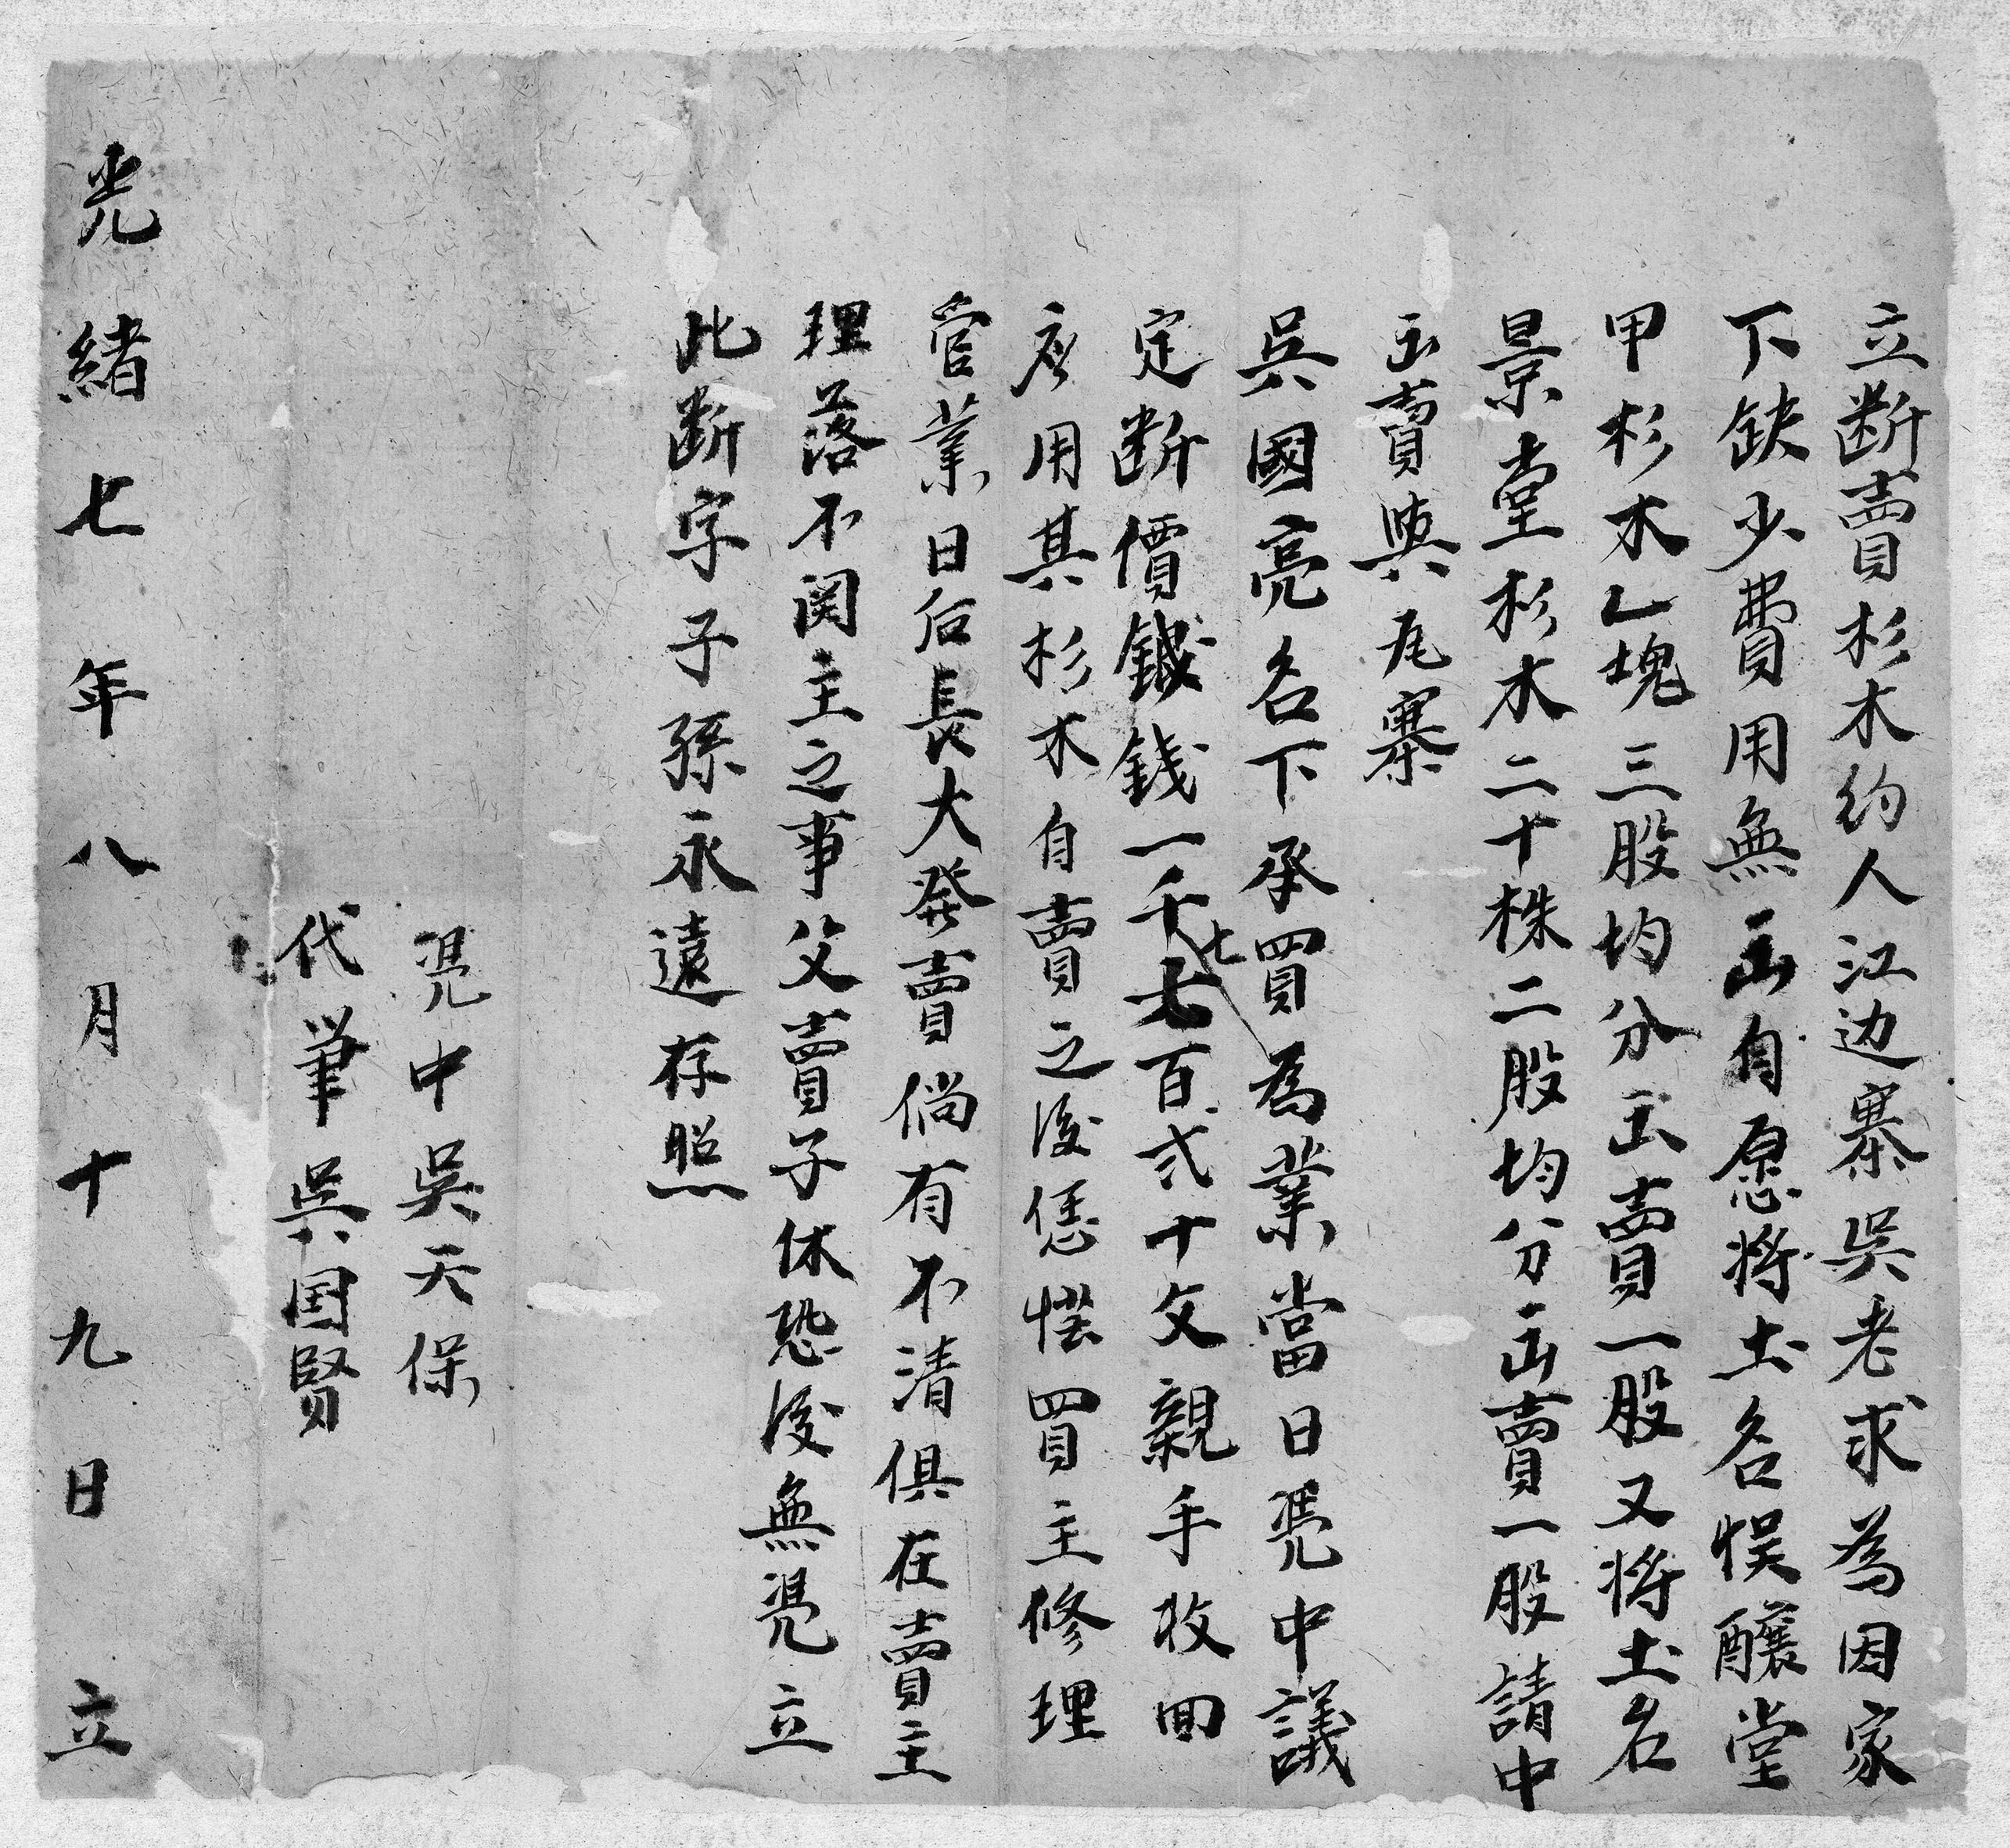 立断賣杉木約人江边寨吳老求為因家
下缺少費用無出自愿將土名悞釀堂
甲杉木乙塊三股均分出賣一股又將土名
景堂杉木二十株二股均分出賣一股請中
出賣與尾寨
吳國亮名下承買為業當日凴中議
定断價錢一千七百弍十文親手收回
應用其杉木自賣之後恁憑買主修理
管業日后長大發賣倘有不清俱在賣主
理落不関主之事父賣子休恐後無凴立
此断字子孫永遠存照
凴中吳天保
代筆吳国賢
光緒七年八月十九日立